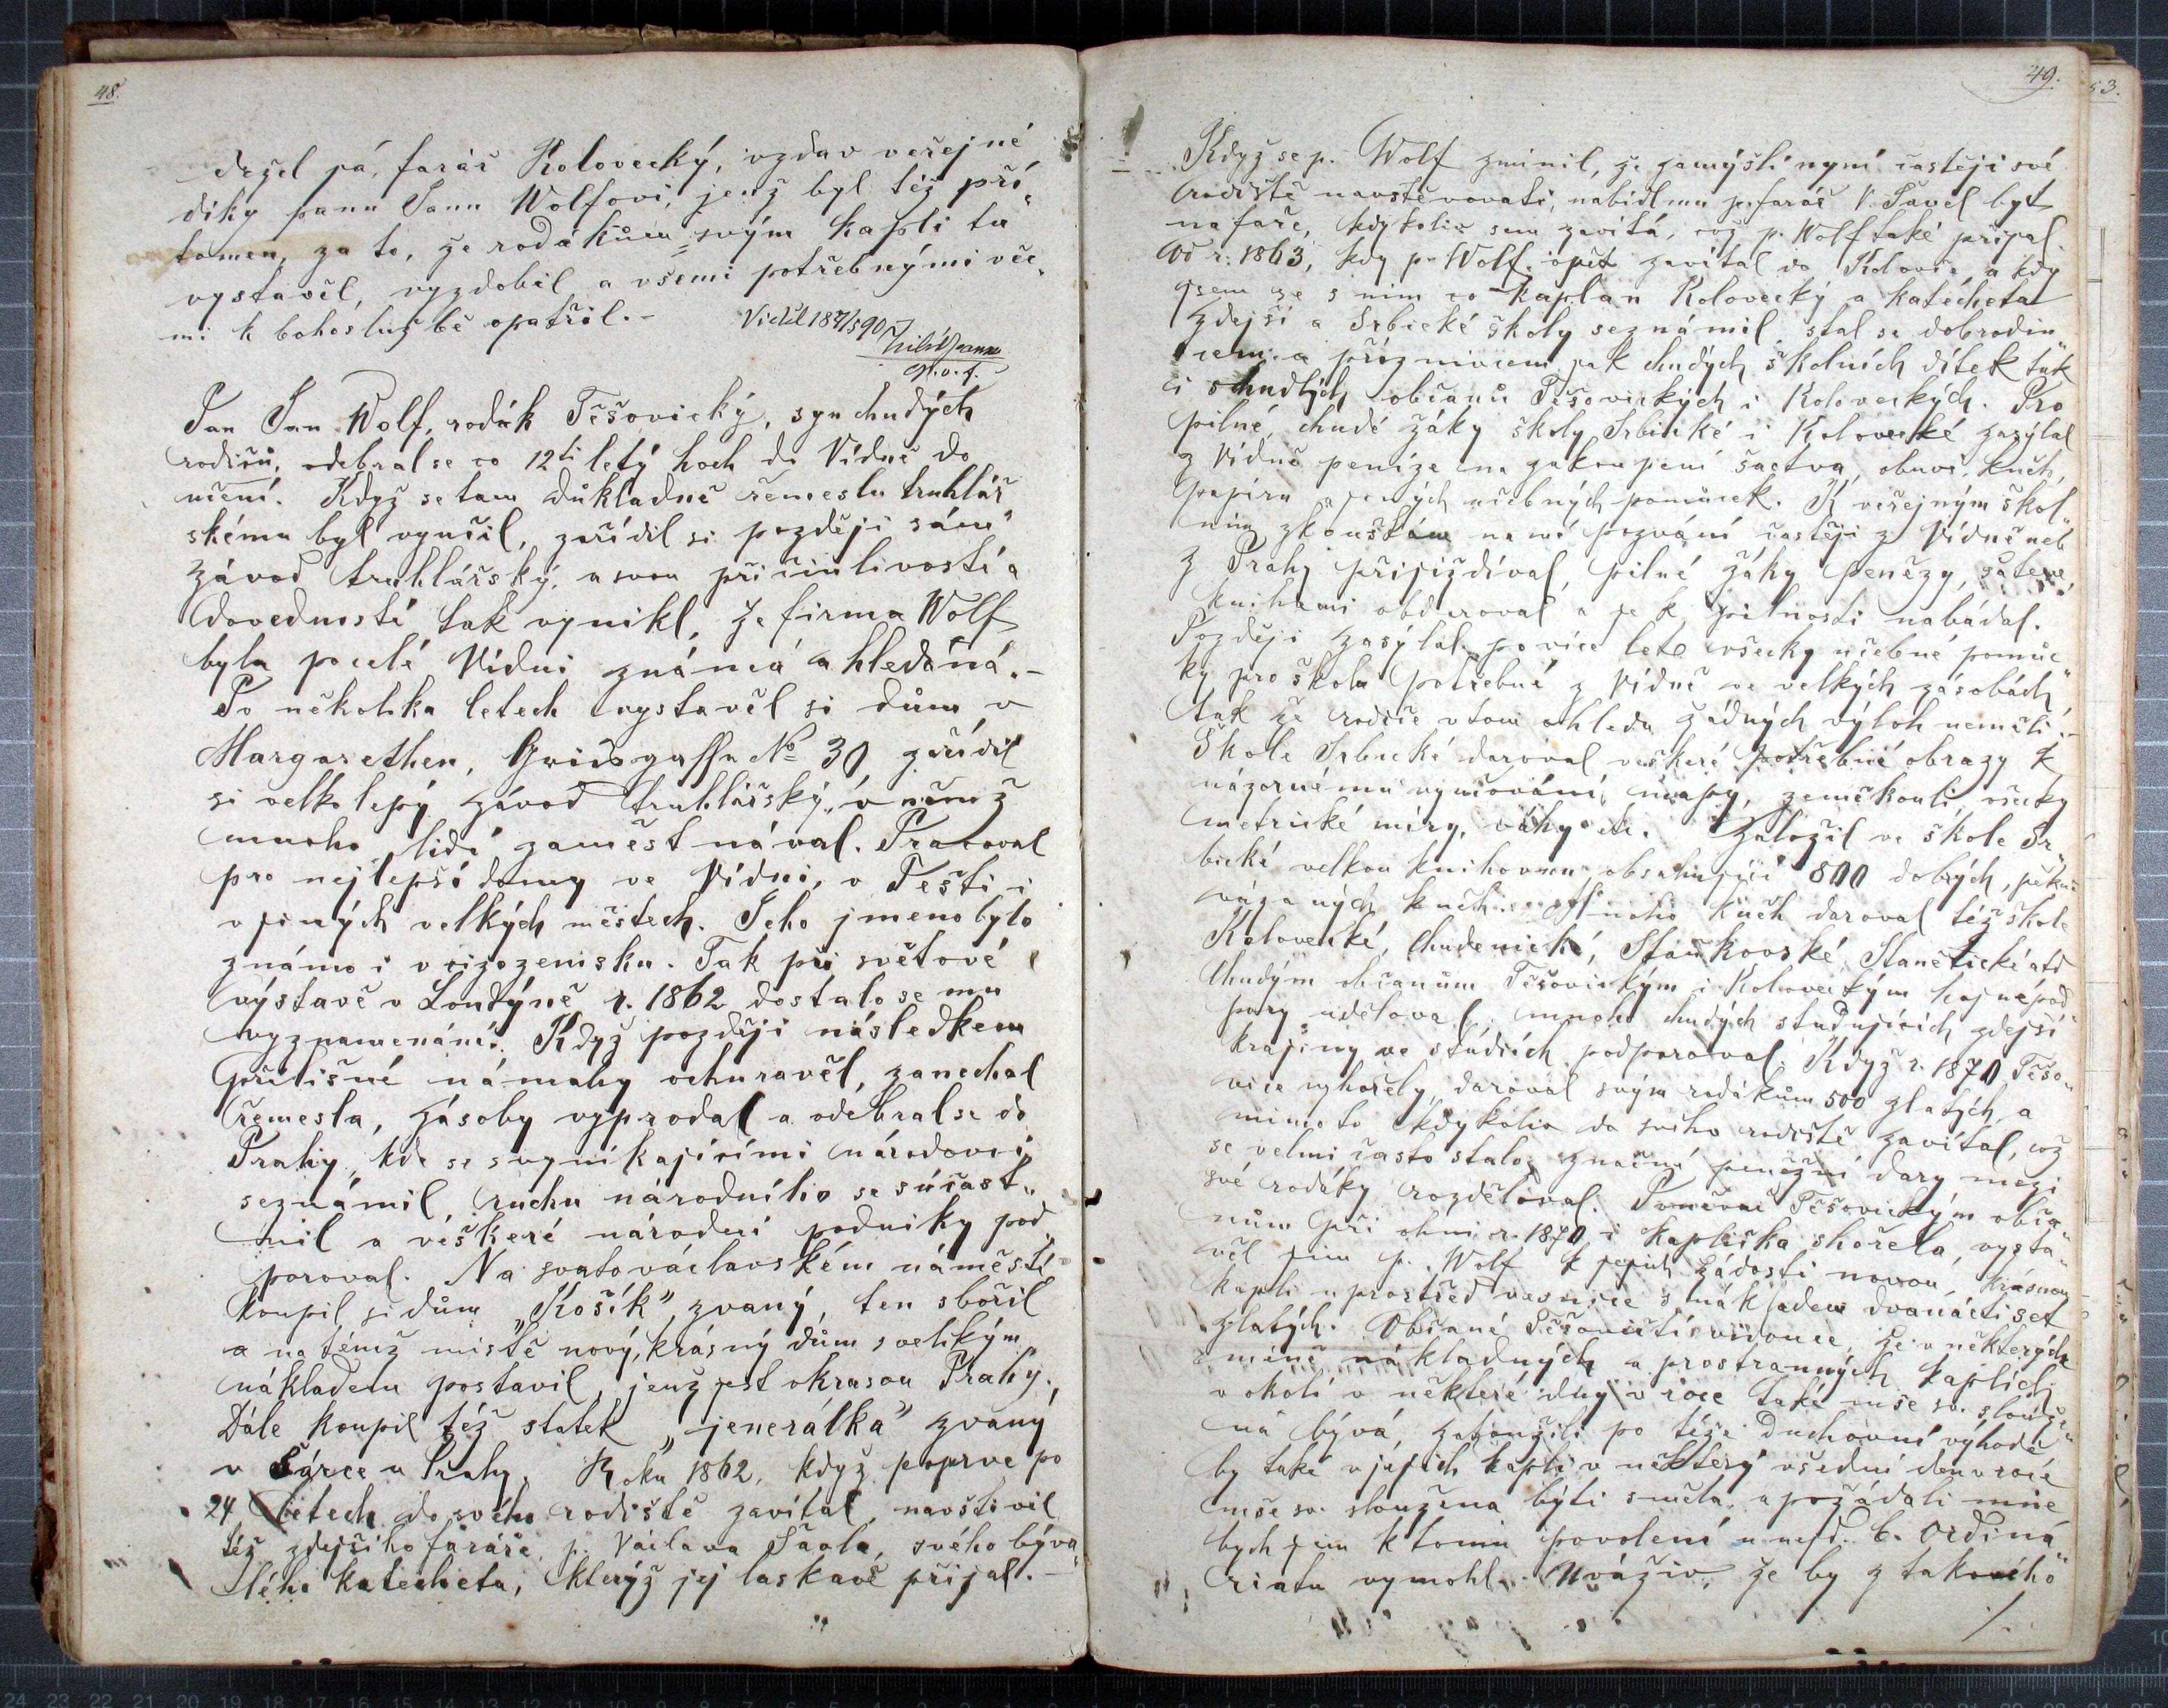 48.
držel pá, farář Kolovecký, vzdav veřejné
díky panu Janu Wolfovi, jenž byl též pří„
tomen, za to, že rodákům svým kapli tu
vystavěl, vyzdobil a všemi potřebnými věc„
mi k bohoslužbě opatřil. –
Viděl 18 7/5 90
Pan Jan Wolf, rodák Těšovický, syn chudých
rodičů, odebral se co 12ti letý hoch do Vídně do
učení. Když se tam důkladně řemeslu truhlář„
skému byl vyučil, zařídil si později sám
závod truhlářský, a svou přičinlivostí a
dovedností tak vynikl, že firma Wolf
byla po celé Vídni známá a hledaná. –
Po několika letech vystavěl si dům v
Margarethen, Griesgasse No 30 zřídil
si velkolepý závod truhlářský, v němž
mnoho lidí zaměstnával. Pracoval
pro nejlepší domy ve Vídni, v Pešti i
v jiných velkých městech. Jeho jmeno bylo
známo i v cizozemsku. Tak při světové
výstavě v Londýně r. 1862 dostalo se mu
vyznamenání. Když později následkem
přílišné námahy ochuravěl, zanechal
řemesla, zásoby vyprodal a odebral se do
Prahy, kde se s vynikajícími národovci
seznámil, ruchu národního se súčast„
nil a veškeré národní podniky pod„
poroval. Na svatováclavském náměstí
koupil si dům „Košík" zvaný, ten sbořil
a na témž místě nový, krásný dům s velikým
nákladem postavil, jenž jest okrasou Prahy.
Dále koupil též statek „jenerálka" zvaný
v Šárce u Prahy. Roku 1862, když poprve po
24 letech do svého rodiště zavítal, navštívil
též zdejšího faráře, p. Václava Šavla, svého býva„
lého katecheta, kterýž jej laskavě přijal. –
49.
53.
Když se p. Wolf zmínil, že zamýšlí nyní častěji své
rodiště navštěvovati, nabídl mu p. farář V. Šavel byt
na faře, kdykoliv sem zavítá, což p. Wolf také přijal.
Od r. 1863, kdy p. Wolf opět zavítal do Kolovče, a kdy
jsem se s ním co kaplan Kolovecký a katecheta
zdejší a Srbické školy seznámil, stal se dobrodin„
cem a příznivcem jak chudých školních dítek tak
i schudlých občanů Těšovických i Koloveckých. Pro
pilné, chudé žáky školy Srbické i Kolovecké zasýlal
z Vídně peníze na zakoupení šactva, obuvi, knih,
papíru a jiných učebných pomůcek. K veřejným škol„
ním zkouškám na mé pozvání častěji z Vídně neb
z Prahy přijížďíval, pilné žáky penězy, šatem,
knihami obdaroval a je k pilnosti nabádal.
Později zasýlal po více lete všecky učebné pomůc„
ky pro školu potřebné z Vídně ve velkých zásobách
tak že rodiče v tom ohledu žádných výloh neměli. –
Škole Srbické daroval veškeré potřebné obrazy k
názornému vyučování, mapy, zeměkouli, všecky
metrické míry, váhy etc. Založil ve škole Sr„
bické velkou knihovnu obsahující 800 dobrých, pěkně
vázaných knih. Mnoho knih daroval též škole
Kolovecké, Chudenické, Staňkovské, Stanětické atd
Chudým občanům Těšovickým i Koloveckým hojné pod„
pory uděloval, mnoho chudých studujících zdejší
krajiny ve studiích podporoval. Když r. 1870 Těšo„
vice vyhořely, daroval svým rodákům 500 zlatých, a
mimoto kdykoliv do svého rodiště zavítal, což
se velmi často stalo, značné peněžní dary mezi
své rodáky rozděloval. Poněvač Těšovickým obča„
nům při ohni r. 1870 i kaplička shořela, vysta„
věl jim p. Wolf k jejich žádosti novou, krásnou
kapli uprostřed vesnice s nákladem dvanácti set
zlatých. Občané Těšovičtí vidouce, že v některých
méně nákladných a prostranných kaplích
v okolí v některé dny v roce také mše sv. slouže„
ná bývá, zatoužili po téže duchovní výhodě
by také v jejich kapli v některý všední den v roce
mše sv. sloužena býti směla, a požádali mne
bych jim k tomu povolení u nejd. b. Ordiná„
riatu vymohl. Uváživ, že by z takového
/.